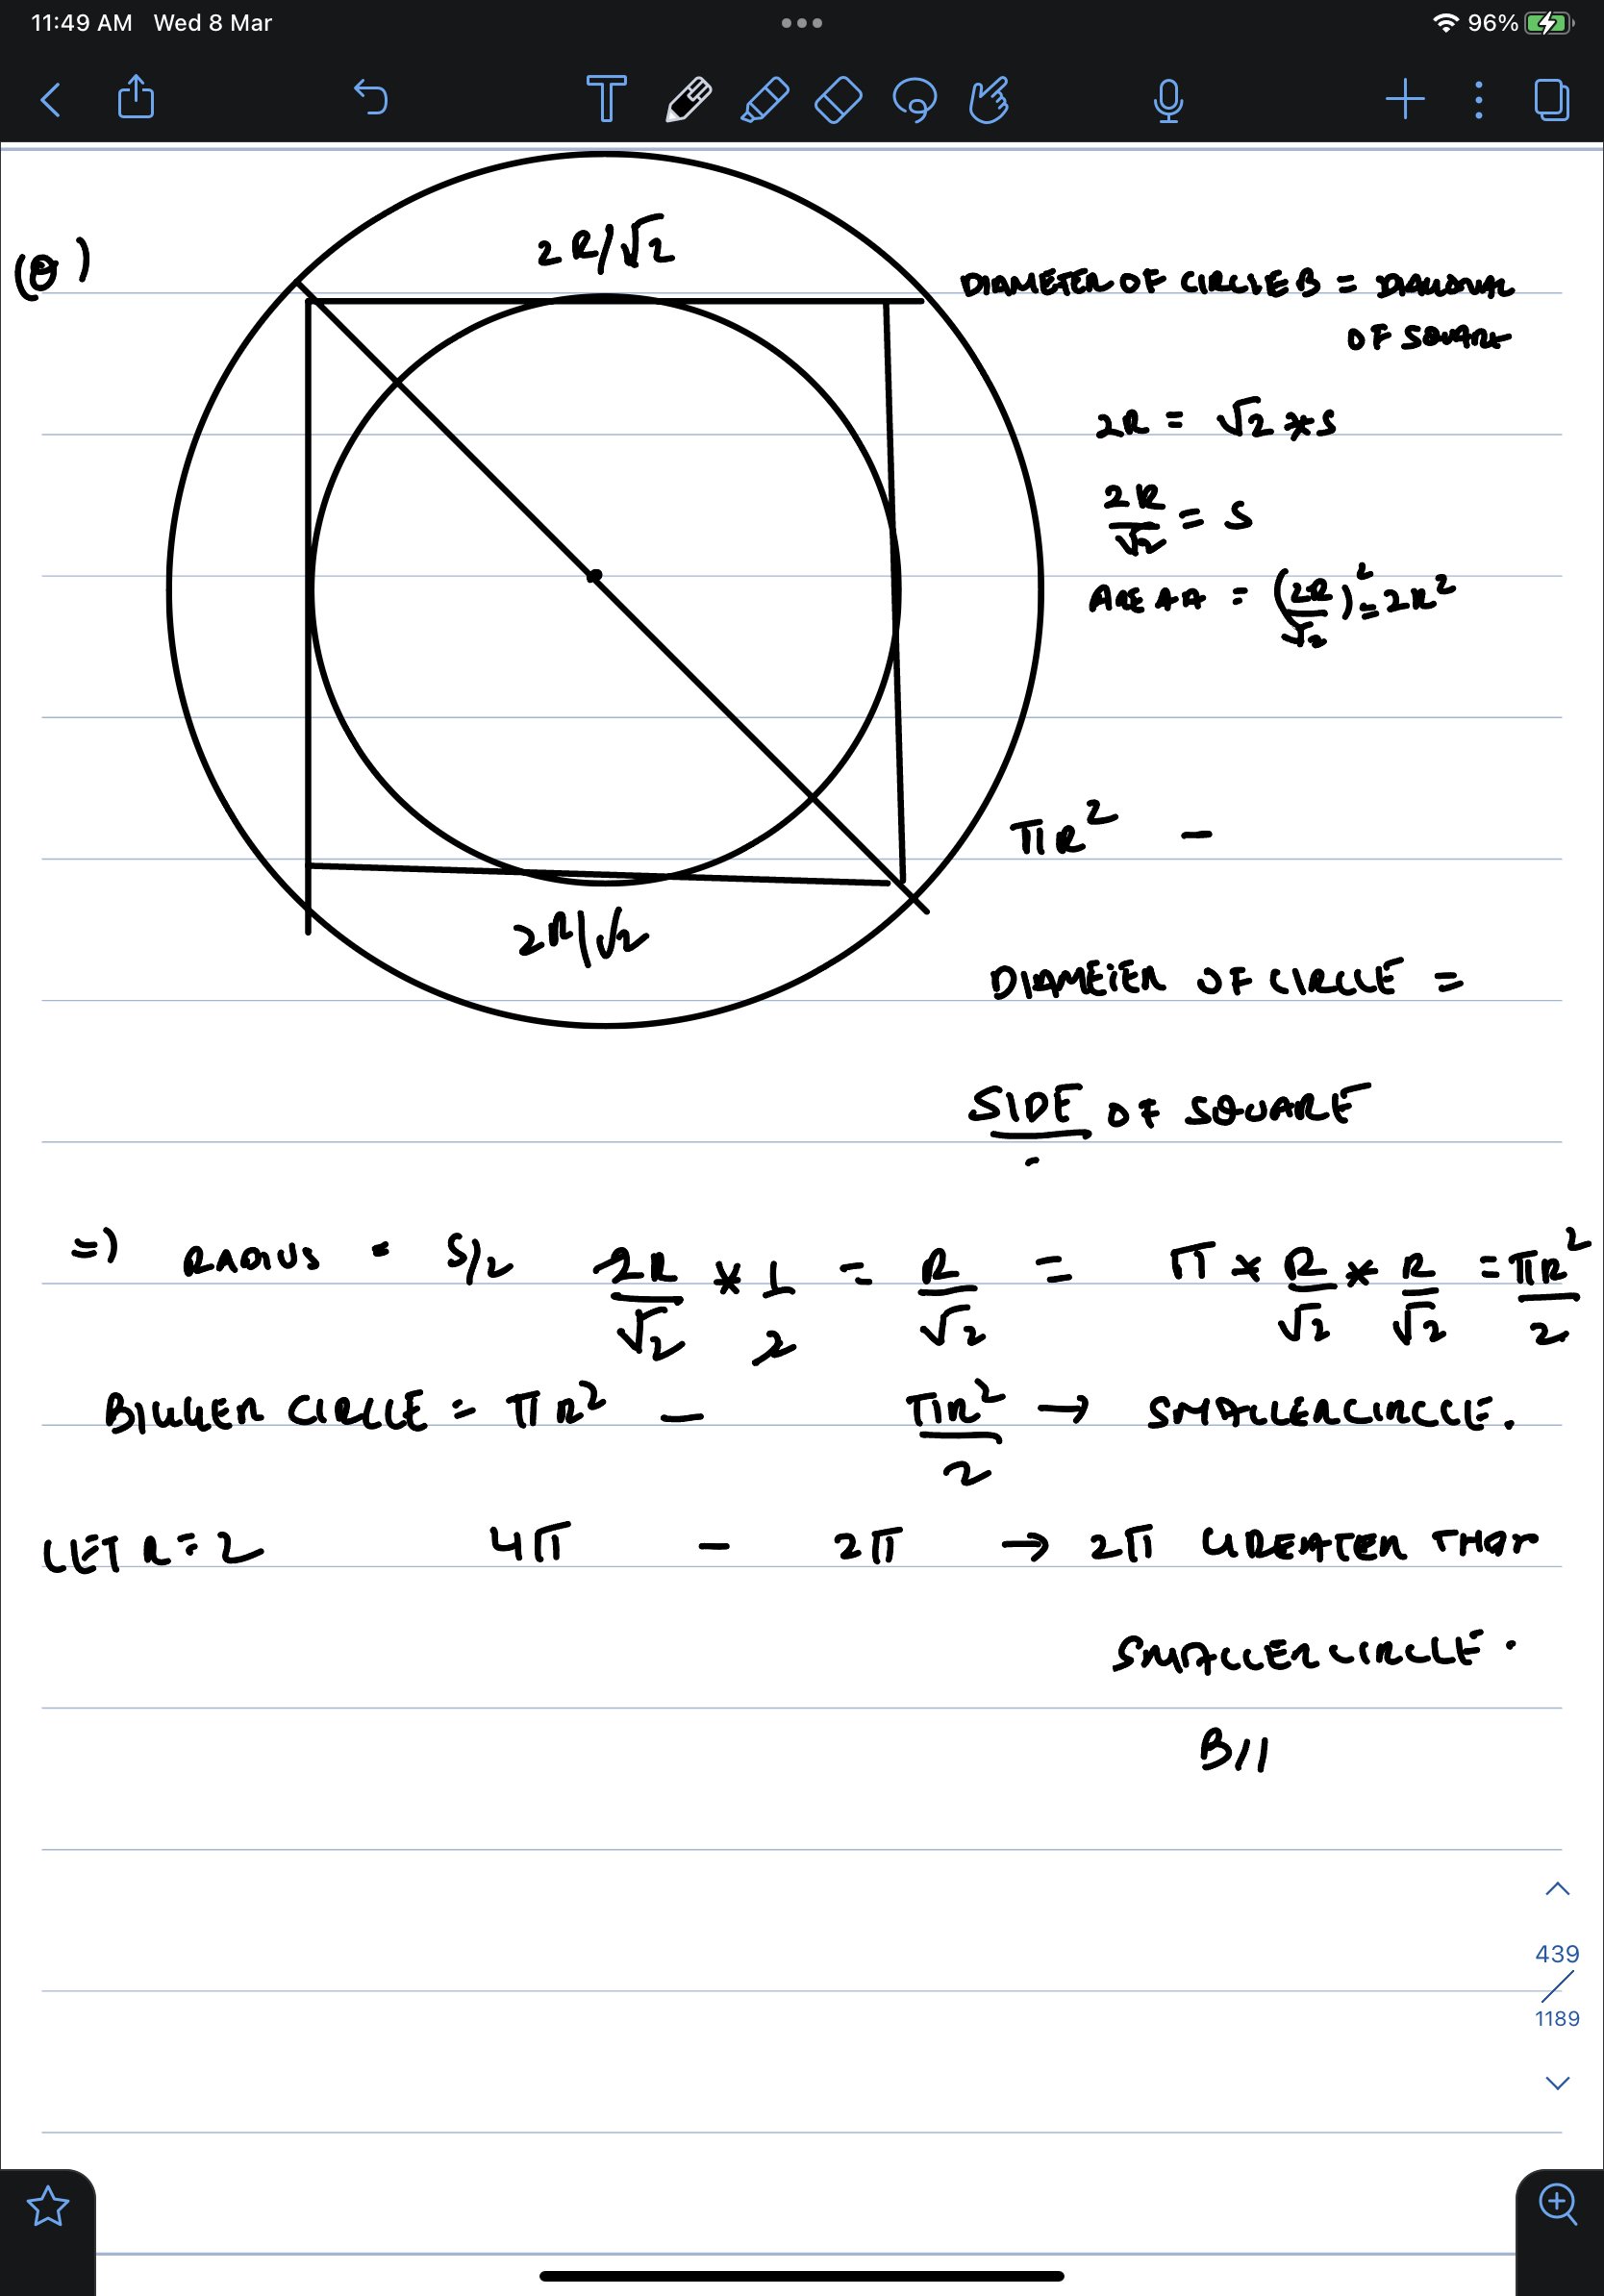 11:49 AM Wed 8 Mar
96%
T
(θ)
2R/√2
DIAMETER OF CIRCLE B = DIAGONAL
OF SQUARE
2R = √2 * S
2R/√2 = S
AREA A = (2R/√2)² = 2R²
πR² −
2R/√2
DIAMETER OF CIRCLE =
SIDE OF SQUARE
=) RADIUS = S/2 2R/√2 * 1/2 = R/√2 = π * R/√2 * R/√2 = πR²/2
BIGGER CIRCLE = πR² − πR²/2 → SMALLER CIRCLE.
LET R = 2 4π − 2π → 2π GREATER THAN
SMALLER CIRCLE.
B//
439
1189